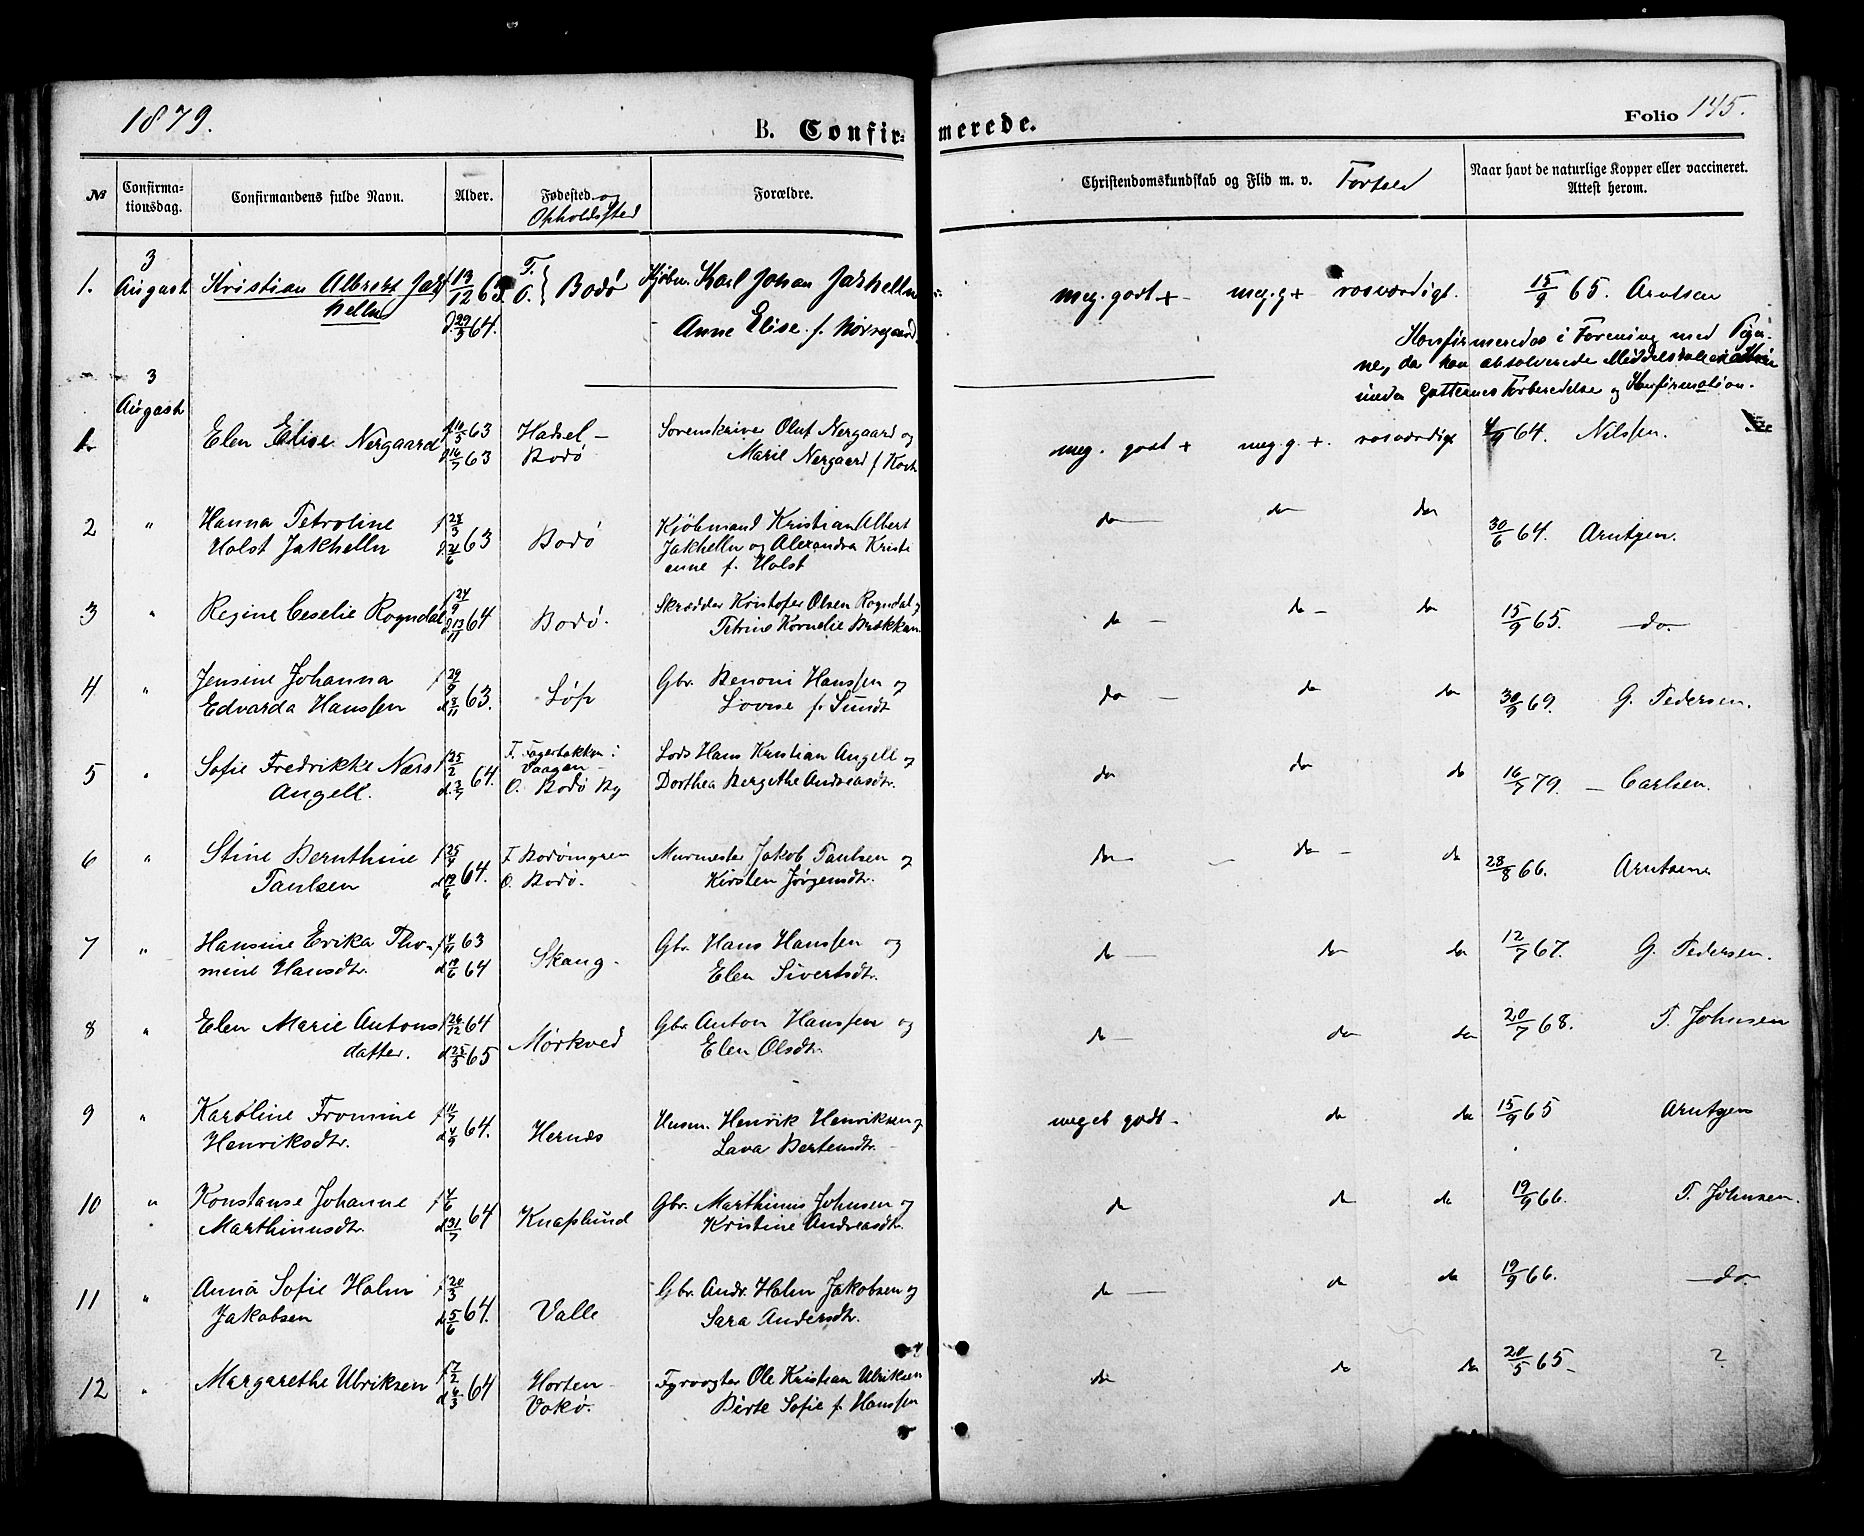 1879.
B. Confirmerede.
Folio 145.
No
Confirmationsdag.
Confirmandens fulde Navn.
Alder.
Fødested og
Opholdssted
Forældre.
Christendomskundskab og Flid m. v. Forhold
Naar havt de naturlige Kopper eller vaccineret.
Attest herom.
1. 3 August Kristian Albrekt Jakhelln f 13/12 63 d. 29/3 64. F. O. } Bodø Kjøbm. Karl Johan Jakhelln
Anne Elise f. Nørregaard
meg. godt + meg. g + rosværdigt. 15/9 65. Arntsen
Konfirmeredes i Forening med Pigerne, da han absolverede Middelskolexamen
under Gutternes Forberedelse og Konfirmation.
3 August
1. Elen Elise Nergaard f 10/5 63 d 16/7 63 Hadsel - Bodø Sorenskriver Oluf Nergaard og
Marie Nergaard f Koch
meg. godt + meg. g. +. rosværdigt 4/9 64. Nilssen.
2 " Hanna Petroline
Holst Jakhelln f 28/3 d. 21/6 63 Bodø Kjöbmand Kristian Albert
Jakhelln og Alexandra Kristi
anne f. Holst
do do do 30/6 64. Arntzen.
3 " Regine Ceselie Rogndal f 24/9 d 13/11 64 Bodø. Skrædder Kristofer Olsen Rogndal og
Petrine Kornelie Brækkan
do do do 15/9 65. do.
4 " Jensine Johanna
Edvarda Hanssen f 29/9 d 8/11 63. Løp Gbr. Benoni Hanssen og
Lovise f. Sundt
do do do 30/9 69. G. Pedersen.
5 " Sofie Fredrikke Nærs
Angell. f 25/2 d. 2/7 64. F. Fagerbakken i
Vaagan -
O. Bodø By Lods Hans Kristian Angell og
Dorthea Bergithe Andreasdtr.
do do do 16/7 79. - Carlsen.
6 " Stine Bernthine
Paulsen f 25/4 d 19/6 64. F. Bodømoen
O. Bodø. Murmester Jakob Paulsen og
Kirsten Jørgensdtr.
do do do 28/8 66. Arntsen
7 " Hansine Erika Tho-
mine Hansdtr. f 4/11 63 d 19/6 64 Skaug. Gbr. Hans Hanssen og
Elen Sivertsdtr.
do do do 12/7 67. G. Pedersen.
8 " Elen Marie Antons
datter. f 26/12 64 d 25/5 65 Mørkved Gbr Anton Hanssen og
Elen Olsdtr.
do do do 20/7 68. T. Johnsen
9 " Karoline Fromine
Henriksdtr. f 11/7 d 4/9 64. Hernes Husm. Henrik Henriksen og
Lava Bertensdtr.
meget godt - do do 15/9 65 Arntzen
10 " Konstanse Johanne
Marthinusdtr. f 4/6 d 31/7 64 Knaplund Gbr. Marthinus Johnsen og
Kristine Andreasdtr.
do do do 19/9 66. T. Johnsen.
11 " Anna Sofie Holm
Jakobsen f 20/3 d 5/6 64. Valle Gbr. Andr. Holm Jakobsen og
Sara Andersdtr.
do do do 19/9 66. do
12 " Margarethe Ulriksen f 17/2 d 6/3 64 Horten -
Vokø. Fyrvogter Ole Kristian Ulriksen
Birte Sofie f. Hanssen
do do do 20/5 65 - ?